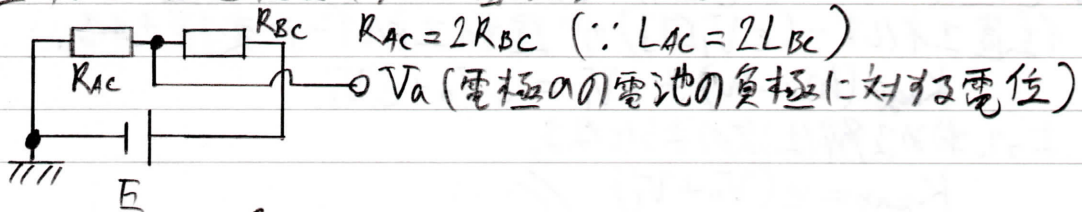 R_BC R_AC = 2R_BC (∵ L_AC = 2L_BC)
R_AC
Va (電極aの電池の負極に対する電位)
E